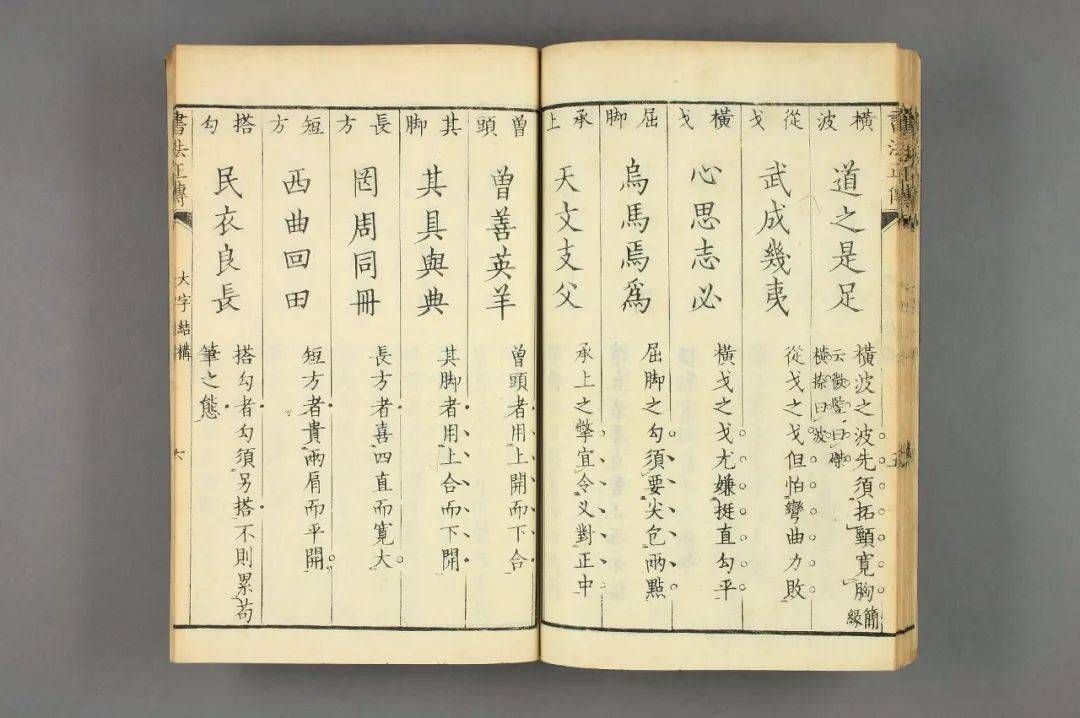 書法正傳
橫波
道之是足
橫波之波先須拓頸寬胸
簡緣
云微竪曰磔
橫捺曰波
從戈
武成幾夷
從戈之戈但怕彎曲力敗
橫戈
心思志必
橫戈之戈尤嫌挺直勾平
屈脚
烏馬焉爲
屈脚之勾須要尖包兩點
承上
天文支父
承上之撆宜令乂對正中
曾頭
曾善英羊
曾頭者用上開而下合
其脚
其具與典
其脚者用上合而下開
長方
罔周同冊
長方者喜四直而寬大
短方
西曲回田
短方者貴兩肩而平開
搭勾
民衣良長
搭勾者勾須另搭不則累苟
筆之態
書法正傳
大字結構
六